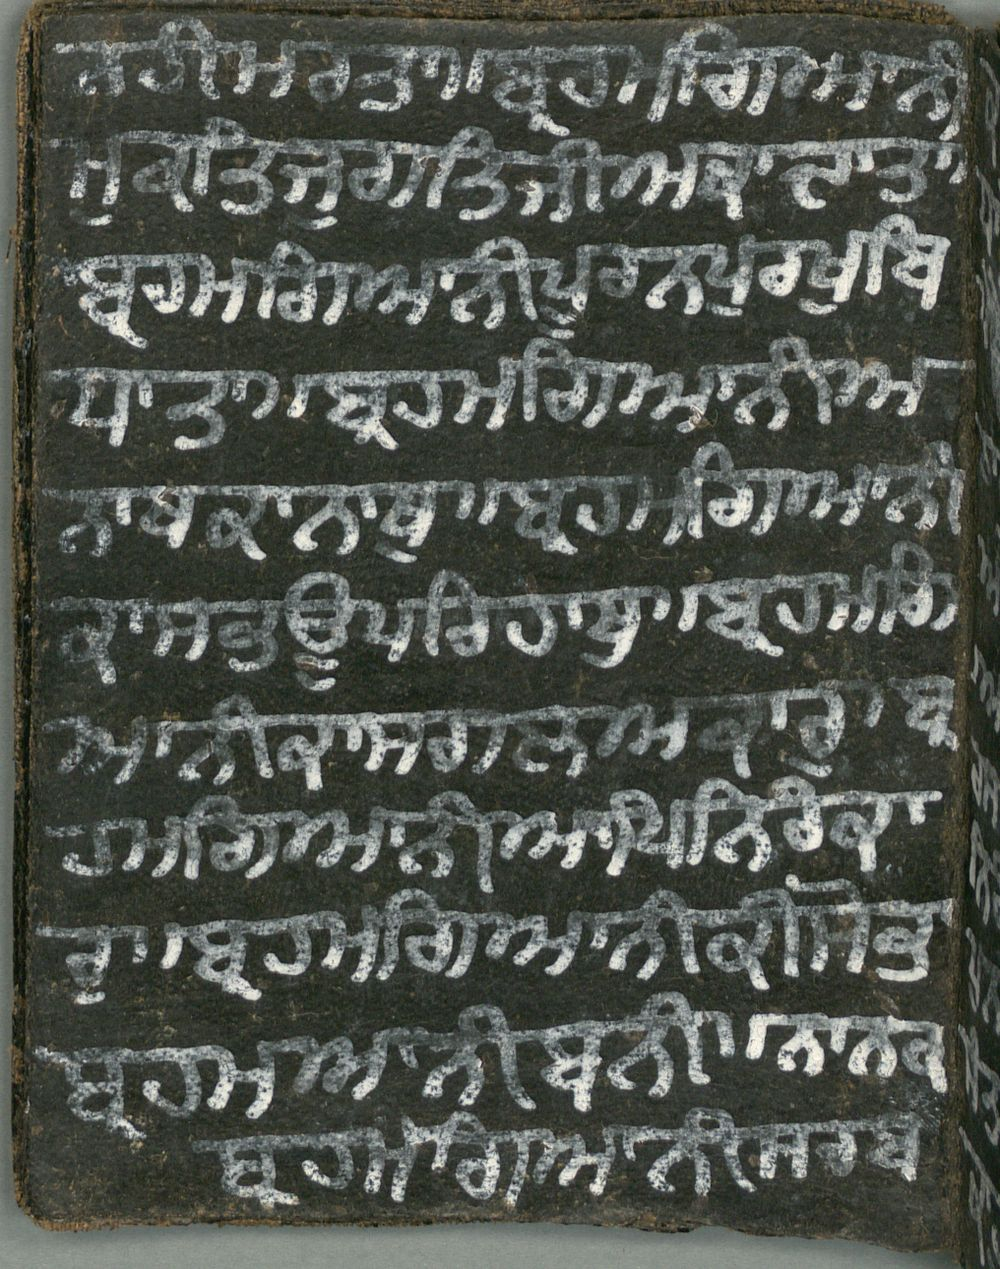 ਨਹੀਮਰਤਾ॥ਬ੍ਰਹਮਗਿਆਨੀ
ਮੁਕਤਿਜੁਗਤਿਜੀਅਕਾਦਾਤਾ
ਬ੍ਰਹਮਗਿਆਨੀਪੂਰਨਪੁਰਖੁਬਿ
ਧਾਤਾ॥ਬ੍ਰਹਮਗਿਆਨੀਅ
ਨਾਥਕਾਨਾਥੁ॥ਬ੍ਰਹਮਗਿਆਨੀ
ਕਾਸਭਊਪਰਿਹਾਥੁ॥ਬ੍ਰਹਮਗਿ
ਆਨੀਕਾਸਗਲਅਕਾਰੁ॥ਬ੍ਰ
ਹਮਗਿਆਨੀਆਪਿਨਿਰੰਕਾ
ਰੁ॥ਬ੍ਰਹਮਗਿਆਨੀਕੀਸੋਭ
ਬ੍ਰਹਮਆਨੀਬਨੀ॥ਨਾਨਕ
ਬ੍ਰਹਮਗਿਆਨੀਸਰਬ